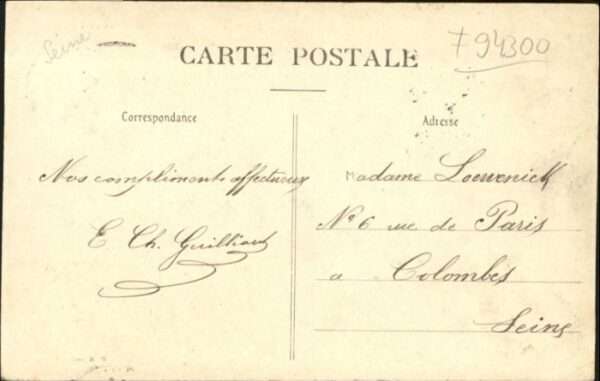 Seine
T 94300
CARTE POSTALE
Correspondance
Adresse
Nos compliments affectueux
E. Ch. Guilliant
Madame Loewenick
Nº 6 rue de Paris
a Colombes
Seine